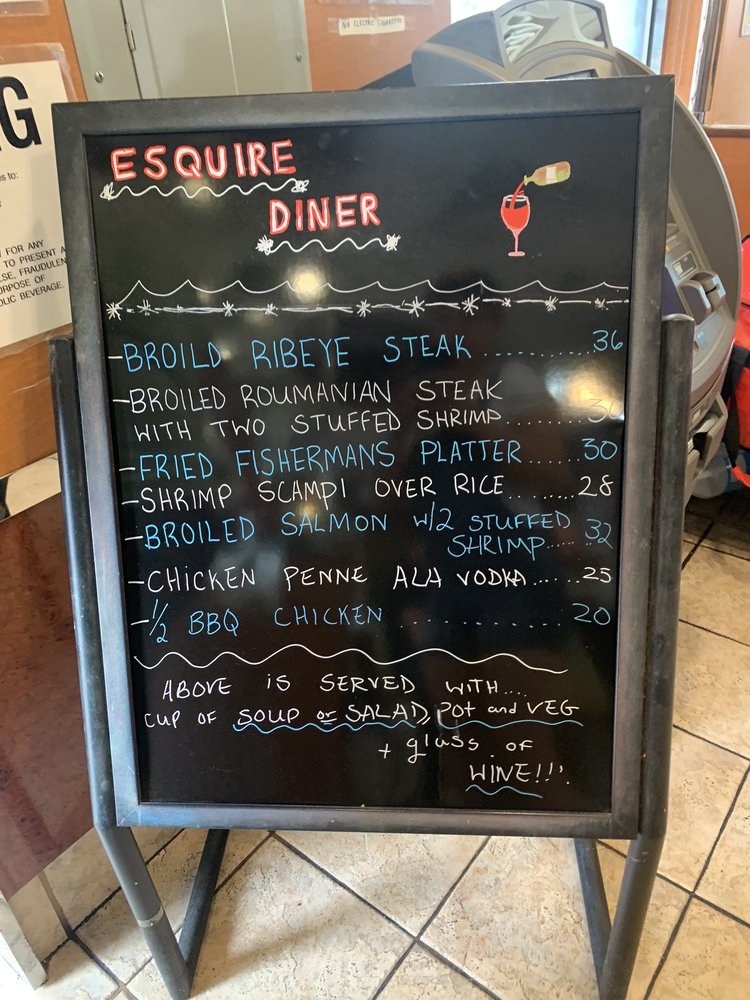 NO ELECTRIC CIGARETTES
G
es to:
FOR ANY
TO PRESENT A
LSE, FRAUDULEN
URPOSE OF
OLIC BEVERAGE.
ESQUIRE
DINER
-BROILD RIBEYE STEAK ........... 36
-BROILED ROUMANIAN STEAK
WITH TWO STUFFED SHRIMP.........
-FRIED FISHERMANS PLATTER ...... 30
-SHRIMP SCAMPI OVER RICE........ 28
-BROILED SALMON W/2 STUFFED
SHRIMP....... 32
-CHICKEN PENNE ALA VODKA ...... 25
-1/2 BBQ CHICKEN ............ 20
ABOVE IS SERVED WITH....
CUP OF SOUP or SALAD, POt and VEG
+ glass of
WINE!!!